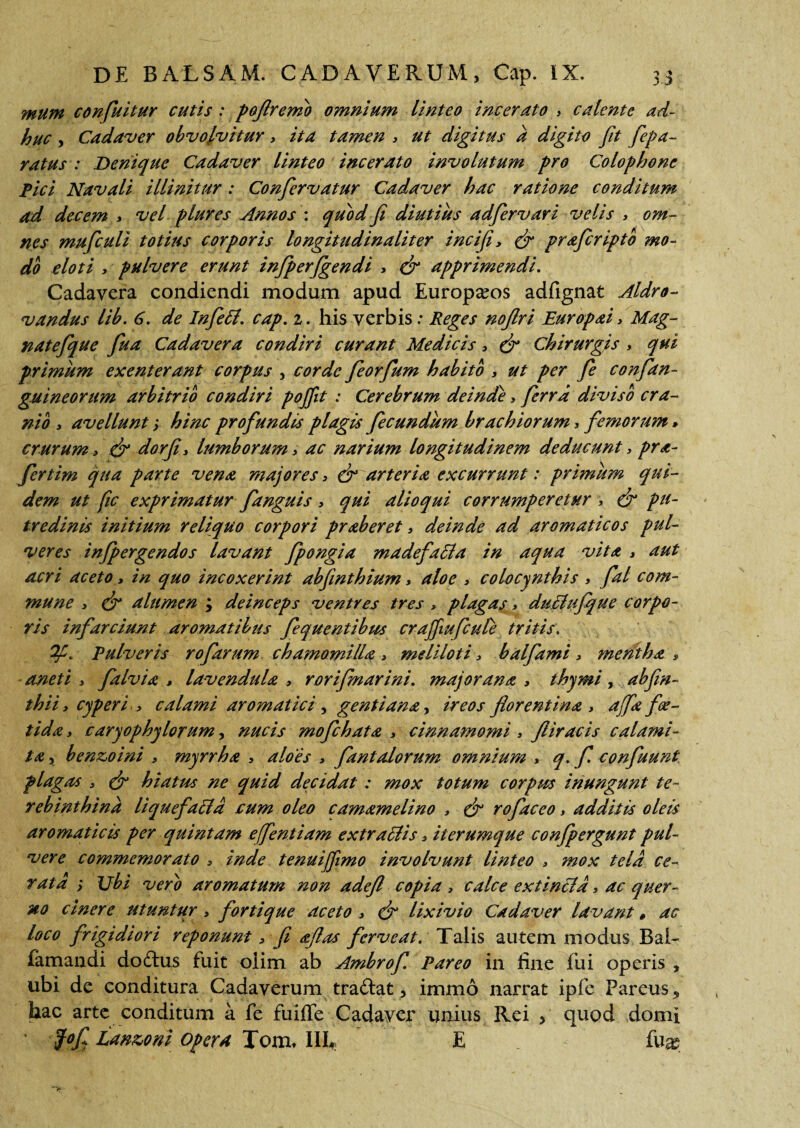 DE BALSAM. CADAVERUM, Cap. IX. 33
mum conſuitur cutis : poſtremò omnium linteo incerato , calente ad-
huc , Cadaver obvolvitur , ita tamen , ut digitus à digito ſit ſepa-
ratus : Denique Cadaver linteo incerato involutum pro Colophone
Pici Navali illinitur : Conſervatur Cadaver hac ratione conditum
ad decem , vel plures Annos : quòd ſi diutiùs adſervari velis , om-
nes muſculi totius corporis longitudinaliter inciſi, & præſcriptò mo-
dò eloti , pulvere erunt inſperſgendi , & apprimendi.
Cadavera condiendi modum apud Europæos adſignat Aldro-
vandus lib. 6. de Inſect. cap. 2. his verbis : Reges noſtri Europæi, Mag-
nateſque ſua Cadavera condiri curant Medicis , & Chirurgis , qui
primùm exenterant corpus , corde ſeorſum habitô , ut per ſe conſan-
guineorum arbitriô condiri poſſit : Cerebrum deindè , ſerrâ diviſô cra-
niô , avellunt ; hinc profundis plagis ſecundùm brachiorum , femorum ,
crurum , & dorſi, lumborum , ac narium longitudinem deducunt , præ-
ſertim qua parte venæ majores , & arteriæ excurrunt : primùm qui-
dem ut ſic exprimatur ſanguis , qui alioqui corrumperetur , & pu-
tredinis initium reliquo corpori præberet , deinde ad aromaticos pul-
veres inſpergendos lavant ſpongia madefacta in aqua vitæ , aut
acri aceto , in quo incoxerint abſinthium , aloe , colocynthis , ſal com-
mune , & alumen ; deinceps ventres tres , plagas , ductuſque corpo-
ris infarciunt aromatibus ſequentibus craſſiuſculè tritis.
℞. Pulveris roſarum chamomillæ , meliloti , balſami , menthæ ,
aneti , ſalviæ , lavendulæ , roriſmarini. majoranæ , thymi , abſin-
thii , cyperi , calami aromatici , gentianæ , ireos florentinæ , aſſæ fœ-
tidæ , caryophylorum , nucis moſchatæ , cinnamomi , ſtiracis calami-
tæ , benzoini , myrrhæ , aloës , ſantalorum omnium , q. ſ. conſuunt
plagas , & hiatus ne quid decidat : mox totum corpus inungunt te-
rebinthinâ liquefactâ cum oleo camæmelino , & roſaceo , additis oleis
aromaticis per quintam eſſentiam extractis , iterumque conſpergunt pul-
vere commemorato , inde tenuiſſimo involvunt linteo , mox telâ ce-
ratâ ; Ubi verò aromatum non adeſt copia , calce extinctâ , ac quer-
no cinere utuntur , fortique aceto , & lixivio Cadaver lavant , ac
loco frigidiori reponunt , ſi æſtas ferveat. Talis autem modus Bal-
ſamandi doctus fuit olim ab Ambroſ. Pareo in fine ſui operis ,
ubi de conditura Cadaverum tractat , immò narrat ipſe Pareus ,
hac arte conditum à ſe fuiſſe Cadaver unius Rei , quod domi
Joſ. Lanzoni Opera Tom. III. E ſuæ